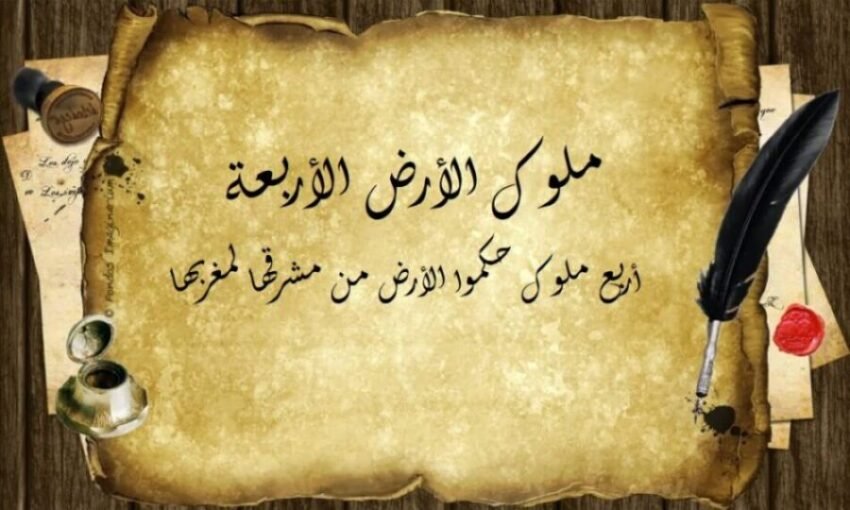 ملوك الأرض الأربعة
أربع ملوك حكموا الأرض من مشرقها لمغربها
© Pandos Imaginarium